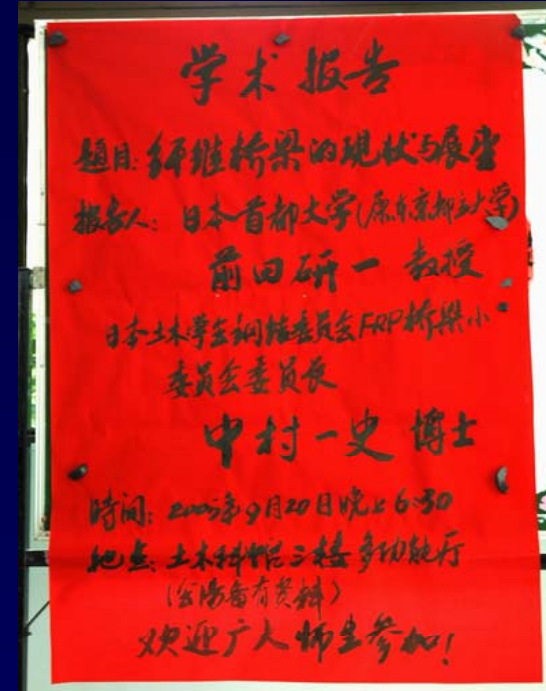 学术报告
题目:纤维桥梁的现状与展望
报告人:日本首都大学(原东京都立大学)
前田研一 教授
日本土木学会钢结委员会FRP桥梁小
委员会委员长
中村一史 博士
时间:2005年9月20日晚上6:30
地点:土木科馆三楼多功能厅
(会场备有资料)
欢迎广大师生参加!